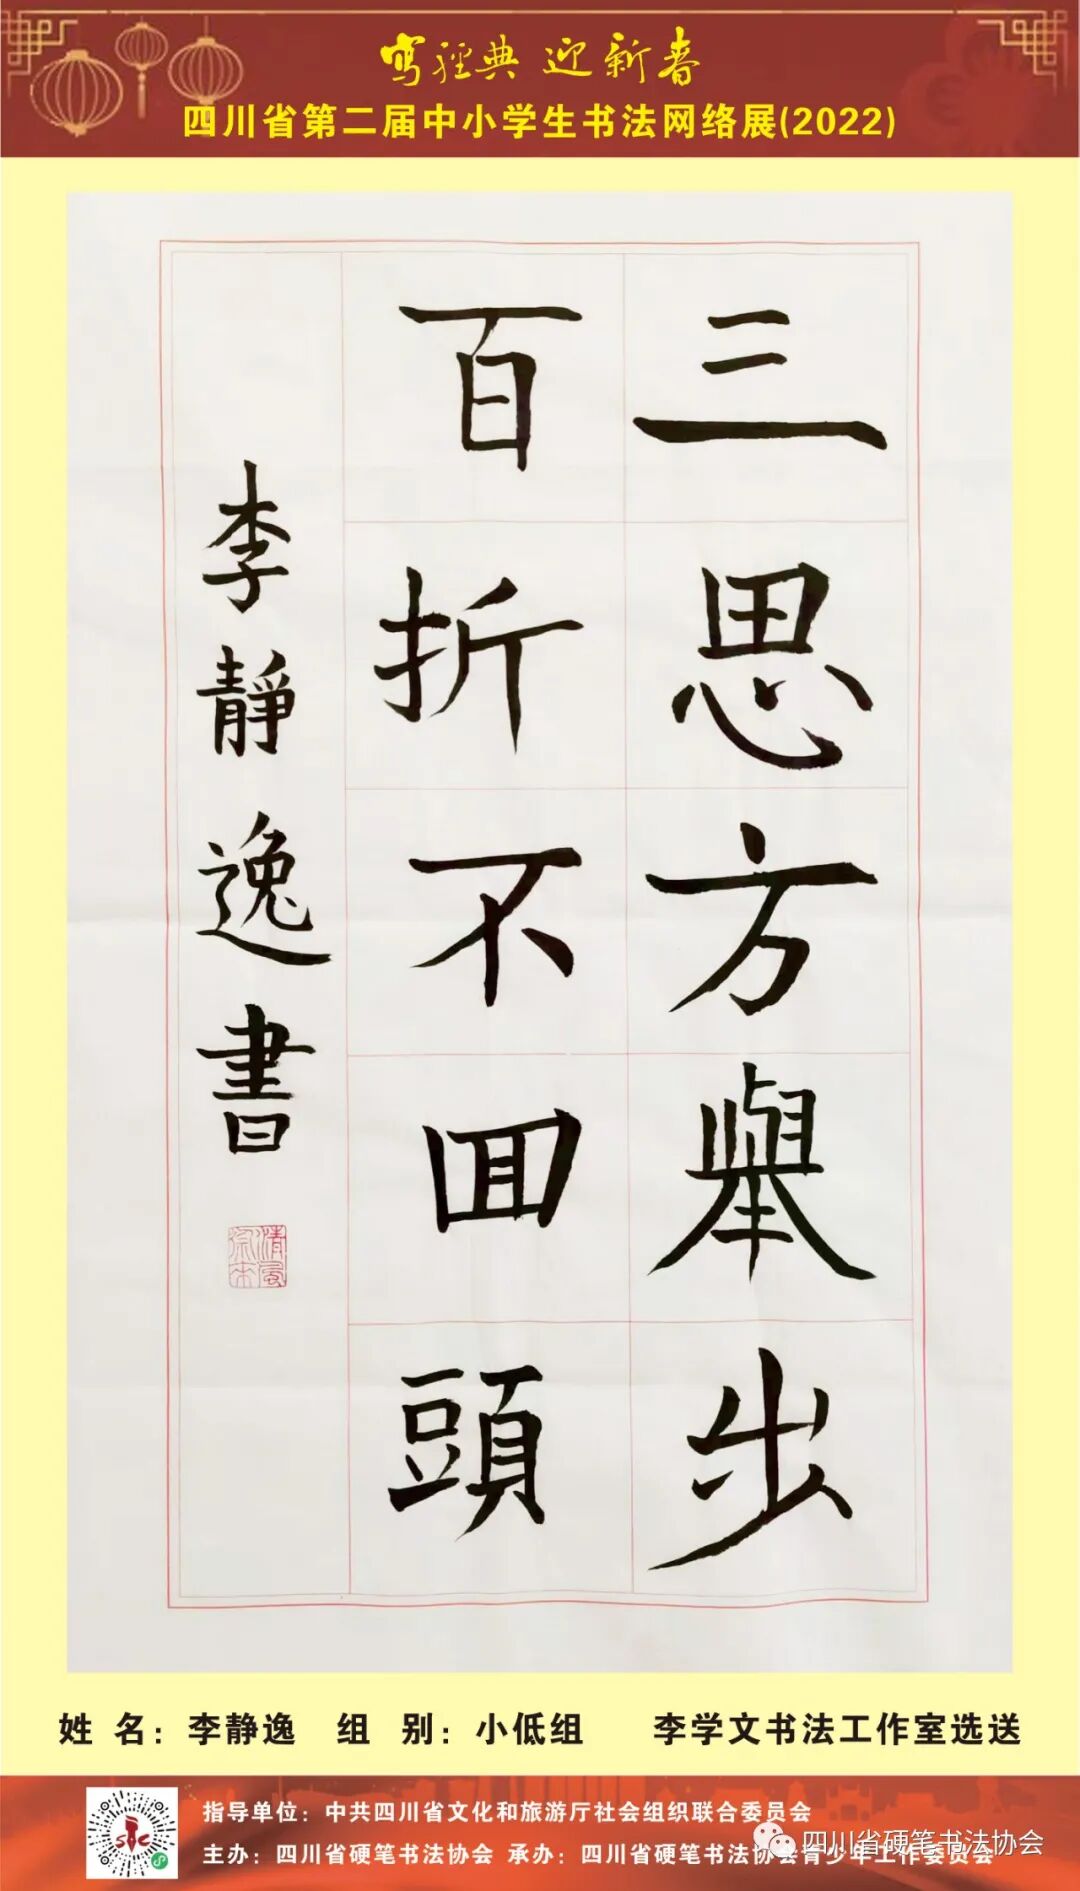 寫經典 迎新春
四川省第二届中小学生书法网络展(2022)
三思方舉步
百折不回頭
李靜逸書
姓 名：李静逸 组 别：小低组 李学文书法工作室选送
指导单位：中共四川省文化和旅游厅社会组织联合委员会
主办：四川省硬笔书法协会 承办：四川省硬笔书法协会青少年工作委员会
四川省硬笔书法协会